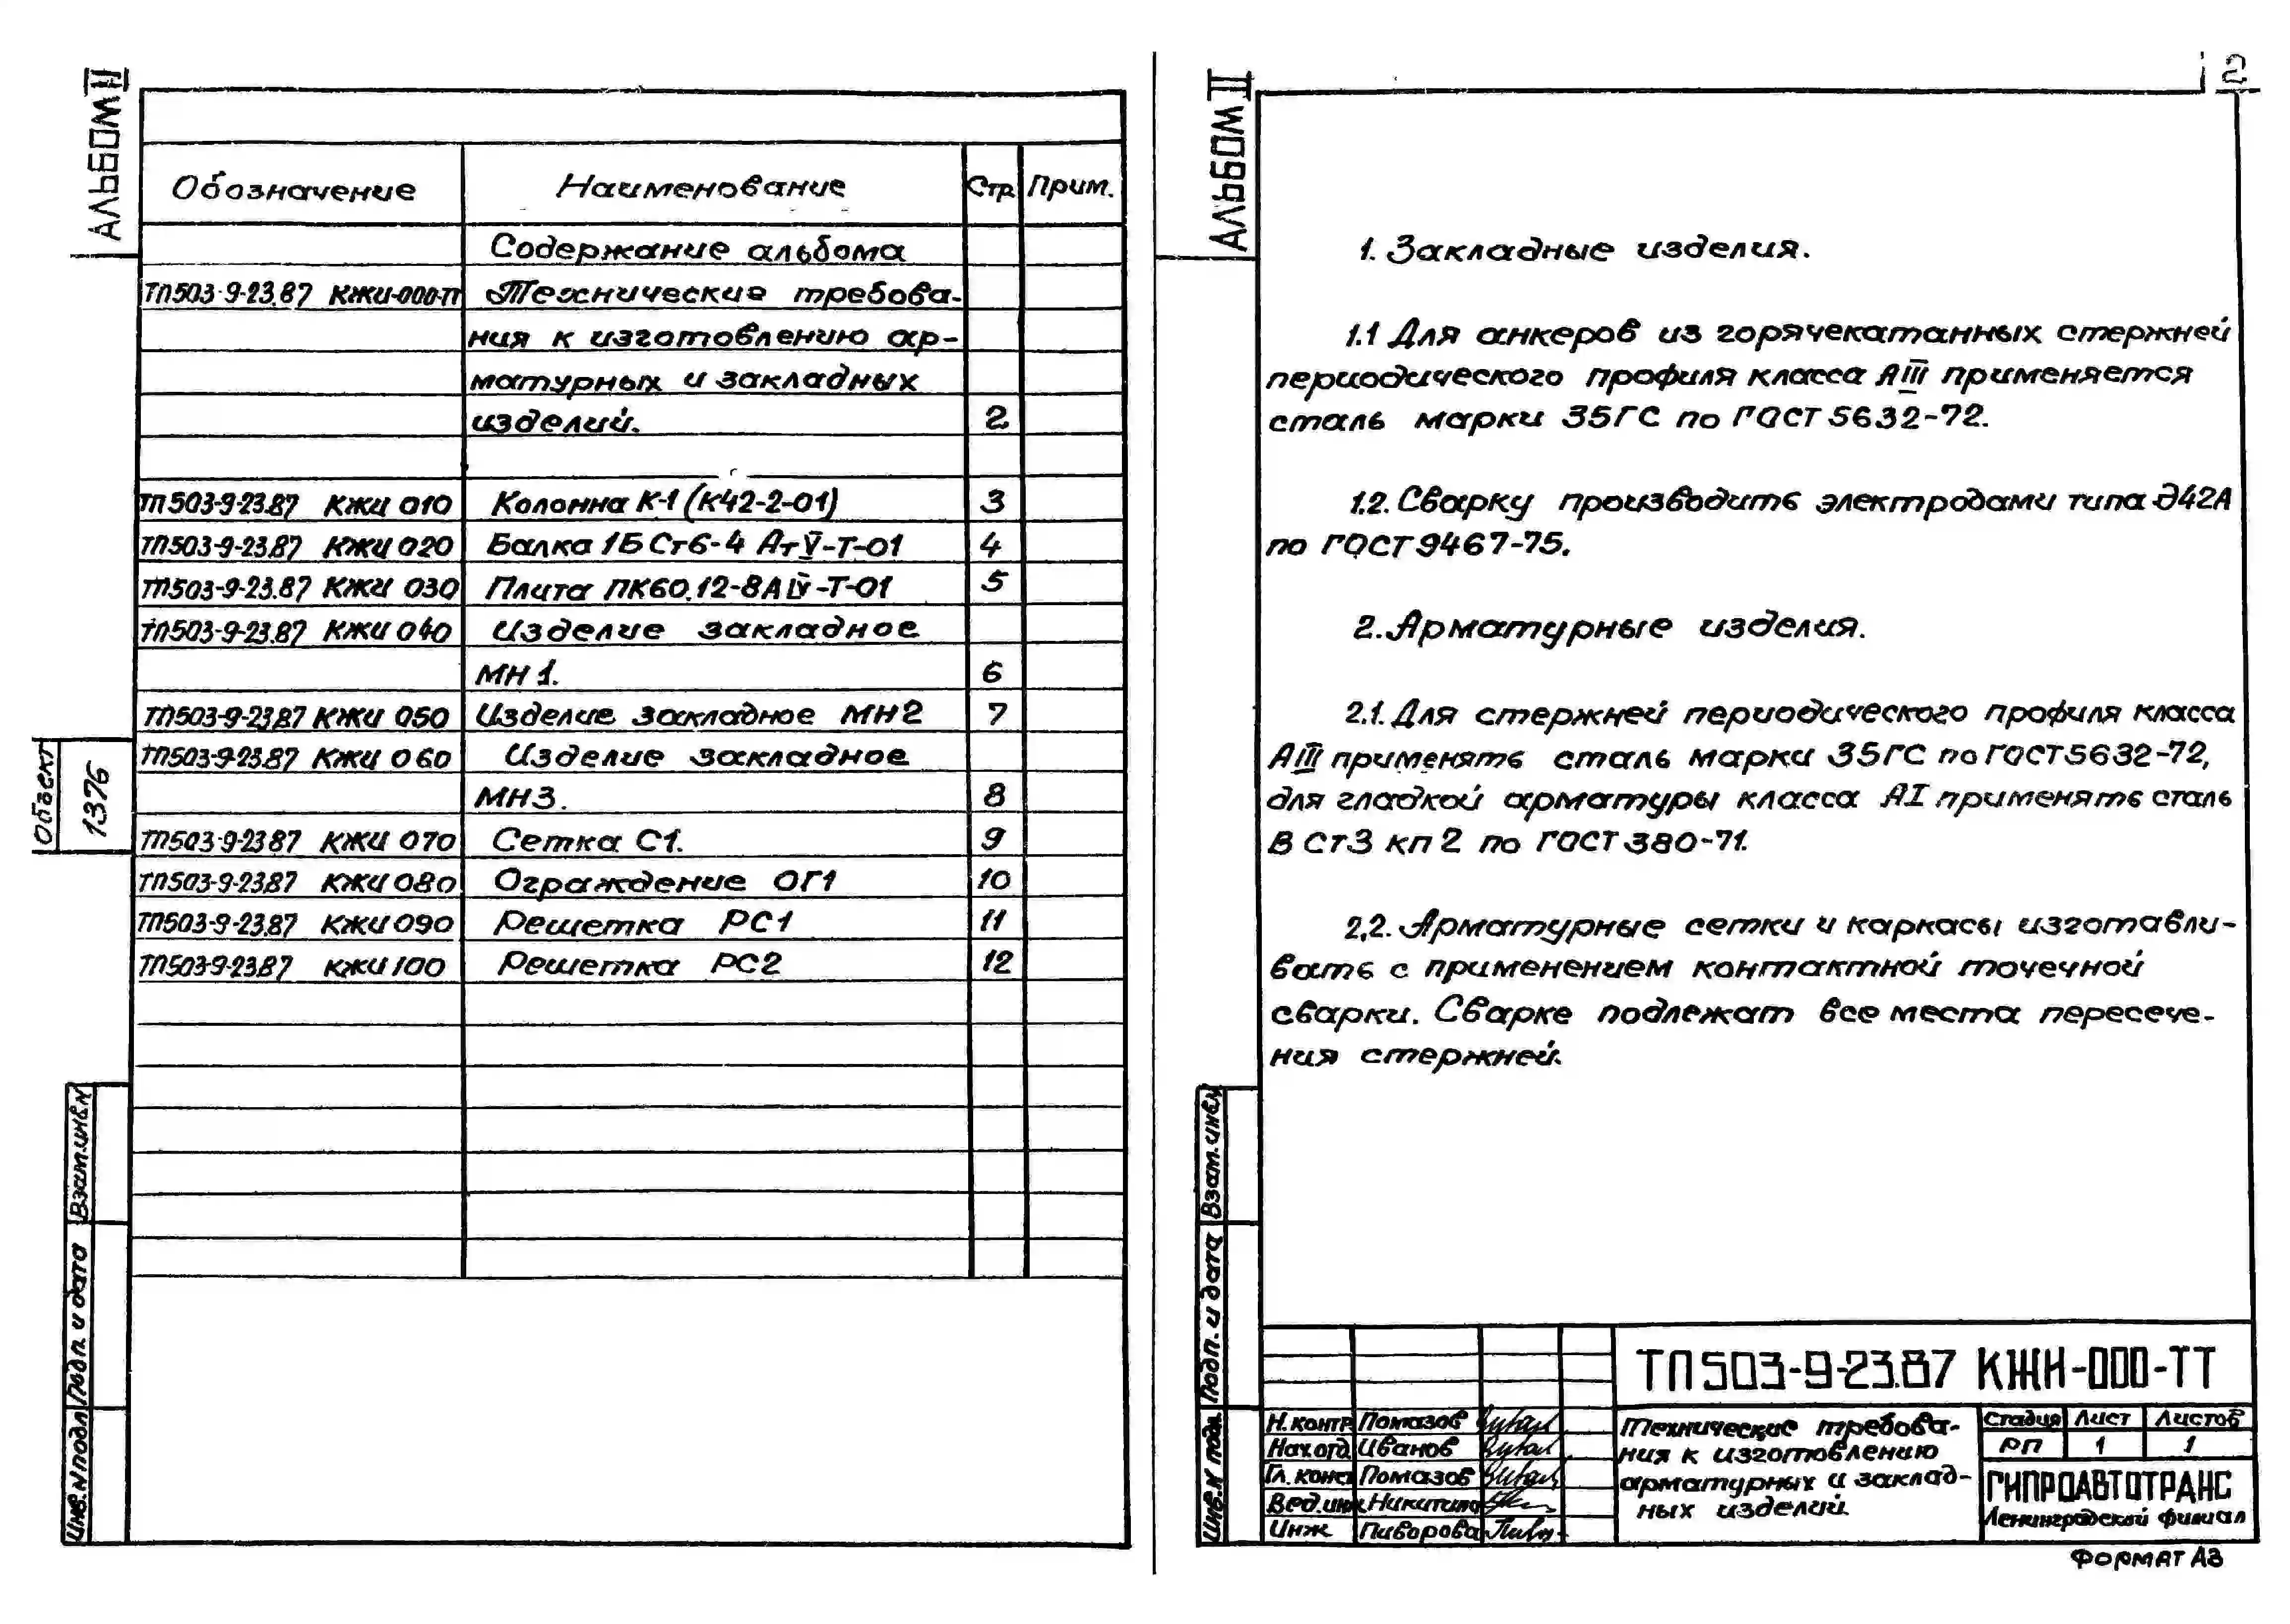 Альбом II
Обозначение Наименование Стр. Прим.
Содержание альбома
ТП503-9-23.87 КЖИ-000-ТТ Технические требова-
ния к изготовлению ар-
матурных и закладных
изделий. 2
ТП503-9-23.87 КЖИ 010 Колонна К-1 (К42-2-01) 3
ТП503-9-23.87 КЖИ 020 Балка 1БСт6-4 АтV-Т-01 4
ТП503-9-23.87 КЖИ 030 Плита ПК60.12-8АIV-Т-01 5
ТП503-9-23.87 КЖИ 040 Изделие закладное
МН1. 6
ТП503-9-23.87 КЖИ 050 Изделие закладное МН2 7
ТП503-9-23.87 КЖИ 060 Изделие закладное
МН3. 8
ТП503-9-23.87 КЖИ 070 Сетка С1. 9
ТП503-9-23.87 КЖИ 080 Ограждение ОГ1 10
ТП503-9-23.87 КЖИ 090 Решетка РС1 11
ТП503-9-23.87 КЖИ 100 Решетка РС2 12
Объект
1376
Взам.инв.N
Подп. и дата
Инв.N подл.
Альбом II
2
1. Закладные изделия.
1.1 Для анкеров из горячекатанных стержней
периодического профиля класса АIII применяется
сталь марки 35ГС по ГОСТ 5632-72.
1.2. Сварку производить электродами типа Э42А
по ГОСТ 9467-75.
2. Арматурные изделия.
2.1. Для стержней периодического профиля класса
АIII применять сталь марки 35ГС по ГОСТ 5632-72,
для гладкой арматуры класса АI применять сталь
В Ст3 кп 2 по ГОСТ 380-71.
2.2. Арматурные сетки и каркасы изготавли-
вать с применением контактной точечной
сварки. Сварке подлежат все места пересече-
ния стержней.
Взам.инв.
Подп. и дата
Инв.N подл.
ТП503-9-23.87 КЖИ-000-ТТ
Н.контр Помазов
Нач.отд. Иванов
Гл.конст Помазов
Вед.инж Никитина
Инж Пиворова
Технические требова-
ния к изготовлению
арматурных и заклад-
ных изделий.
Стадия Лист Листов
РП 1 1
ГИПРОАВТОТРАНС
Ленинградский филиал
Формат А3